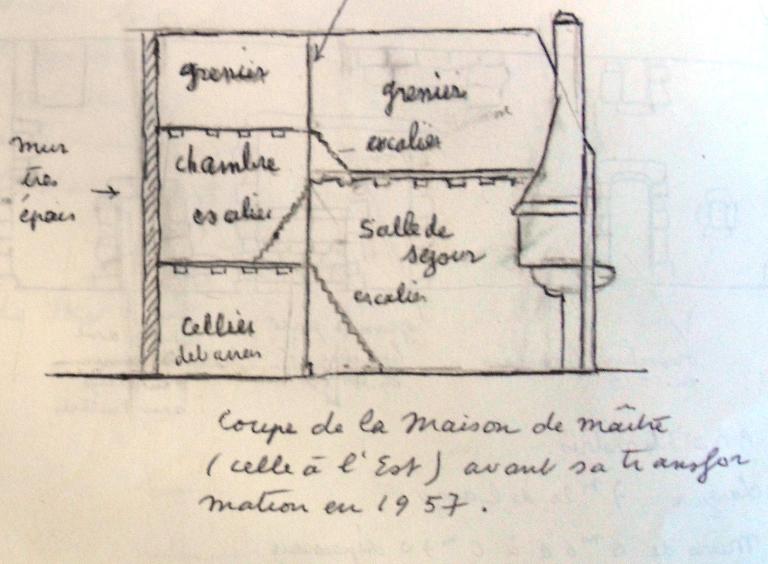 grenier
grenier
escalier
mur
très
épais
chambre
escalier
Salle de
séjour
escalier
cellier
debarras
Coupe de la Maison de maître
(celle à l'Est) avant sa transfor
mation en 1957.